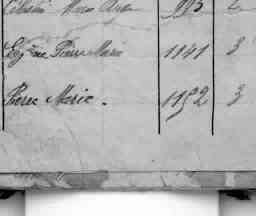 Marie Ange 1193 2
Eugène Pierre Marie 1141 3
Pierre Marie. 1152 3